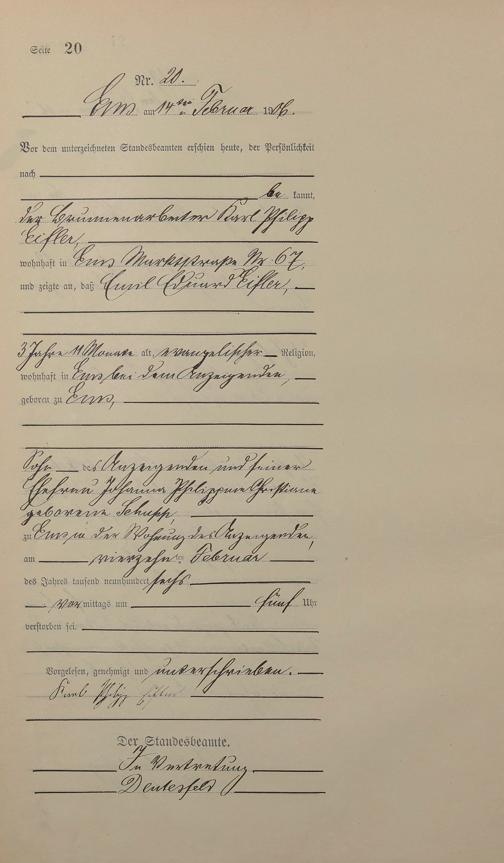 Seite 20
Nr. 20.
Ems am 14ten Februar 1906.
Vor dem unterzeichneten Standesbeamten erschien heute, der Persönlichkeit
nach
be kannt,
der Brunnenarbeiter Karl Philipp
Eifler,
wohnhaft in Ems Marktstraße Nr. 67,
und zeigte an, daß Emil Eduard Eifler,
3 Jahre 11 Monate alt, evangelischer Religion,
wohnhaft in Ems, bei dem Anzeigenden,
geboren zu Ems,
Sohn des Anzeigenden und seiner
Ehefrau Johanna Philippine Christiane
geborene Schupp,
zu Ems in der Wohnung des Anzeigenden,
am vierzehnten Februar
des Jahres tausend neunhundert sechs
vor mittags um fünf Uhr
verstorben sei.
Vorgelesen, genehmigt und unterschrieben.
Karl Philipp Eifler
Der Standesbeamte.
In Vertretung